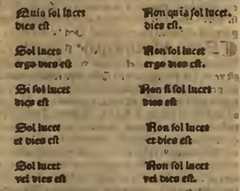 Quia sol lucet
dies est
Sol lucet
ergo dies est
Si sol lucet
dies est
Sol lucet
et dies est
Sol lucet
vel dies est
Non quia sol lucet.
dies est.
Non sol lucet
ergo dies est.
Non si sol lucet
dies est
Non sol lucet
et dies est
Non sol lucet
vel dies est.